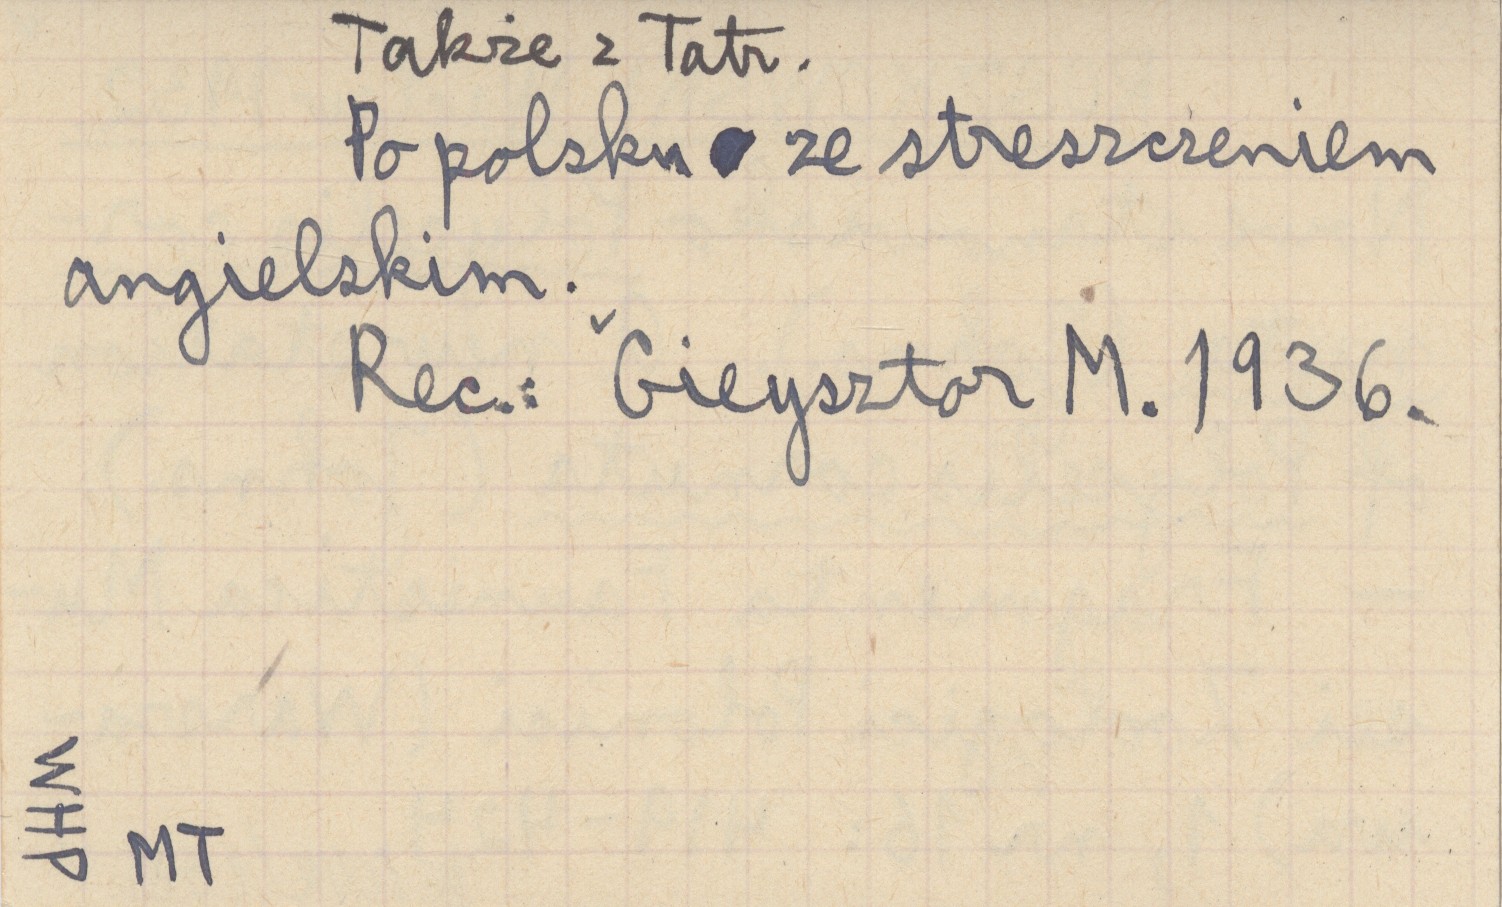 Także z Tatr.
Po polsku ze streszczeniem
angielskim.
Rec.: ˇGieysztor M. 1936.
WHP
MT